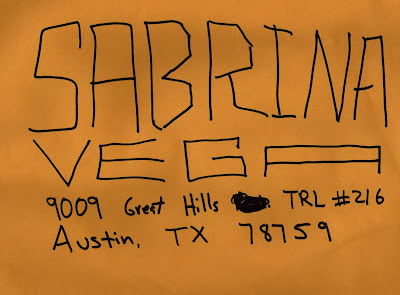 SABRINA
VEGA
9009 Great Hills TRL #216
Austin, TX 78759